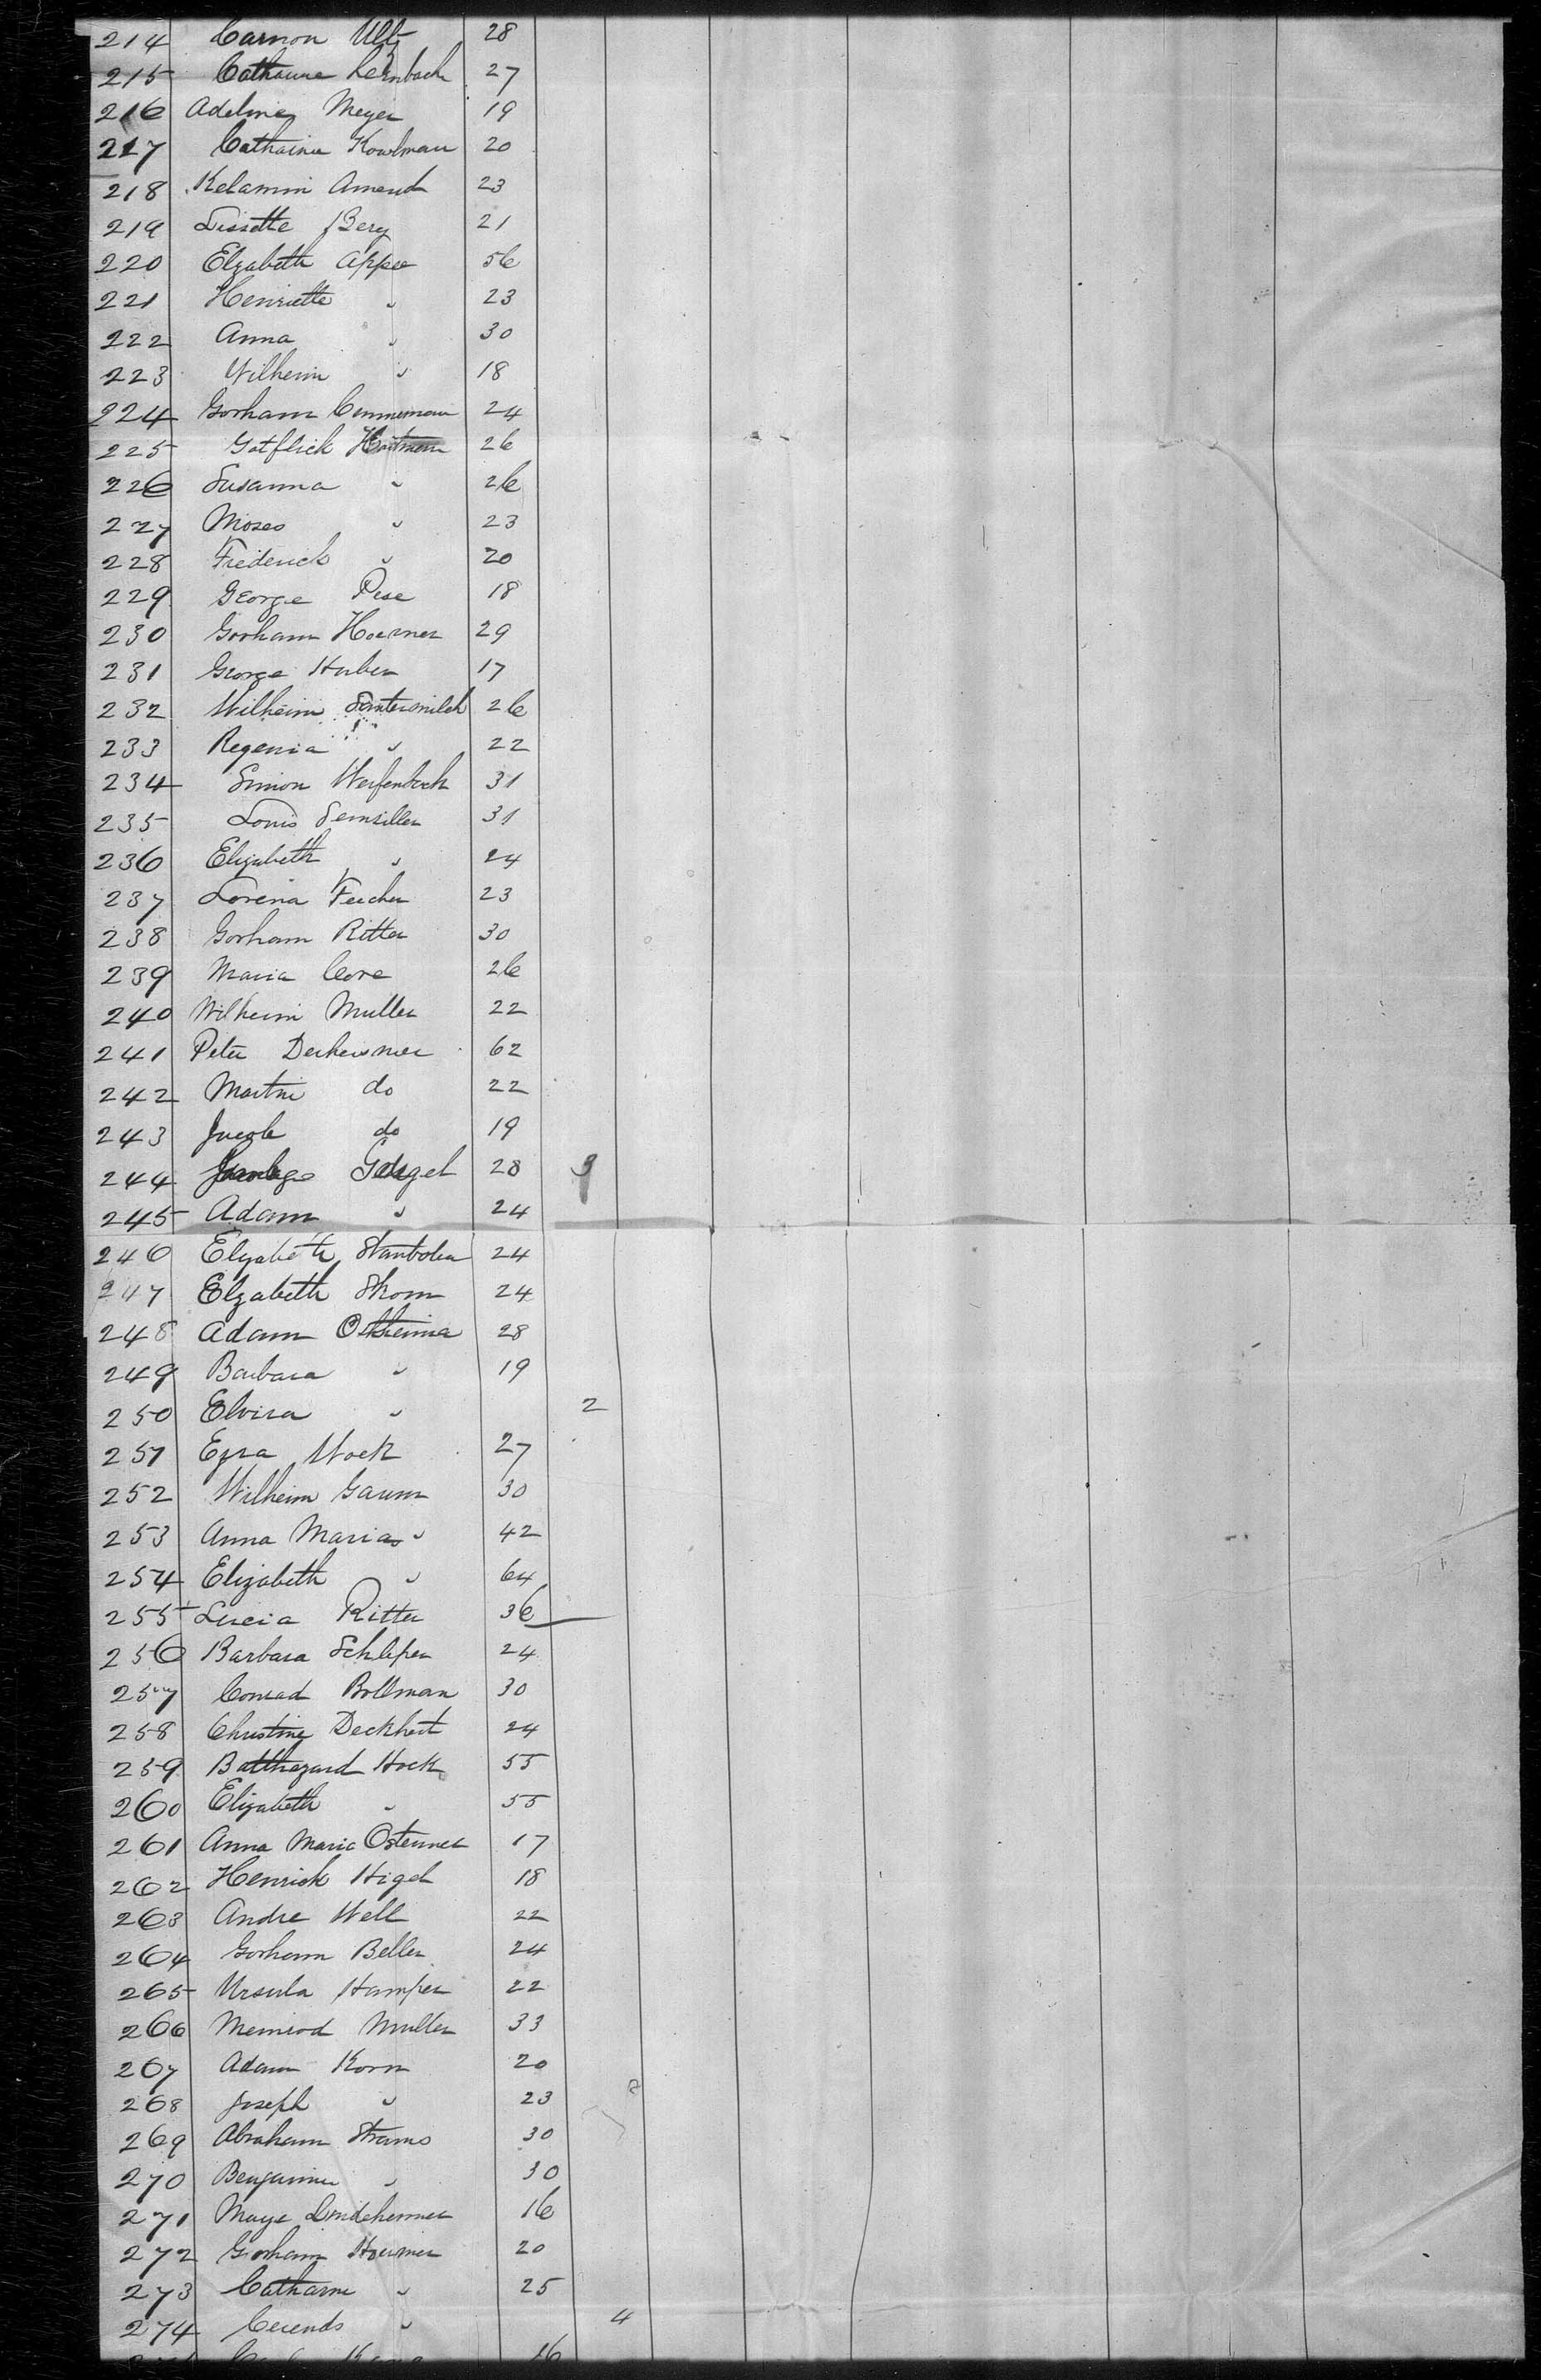 214 Carmon Ulz 28
215 Catharine Leimbach 27
216 Adeline Meyer 19
217 Catharine Kowlman 20
218 Kelamin Amend 23
219 Lissette Berg 21
220 Elzabeth Appee 56
221 Henriette " 23
222 Anna " 30
223 Wilheim " 18
224 Gorham Cemmerman 24
225 Gotflick Hartman 26
226 Susanna " 26
227 Moses " 23
228 Frederick " 20
229 George Pese 18
230 Gorham Hoerner 29
231 George Huber 17
232 Wilheim 26
233 Regenia " 22
234 Simon Weifenbach 31
235 Louis Semsiller 31
236 Elizabeth " 24
237 Lorena Feecher 23
238 Gorham Ritter 30
239 Maria Core 26
240 Wilheim Muller 22
241 Peter 62
242 Martin do 22
243 Jacob do 19
244 28 9
245 Adam " 24
246 Elyabeth 24
247 Elzabeth Shom 24
248 Adam Ostheima 28
249 Barbara " 19
250 Elvira " 2
251 Ezra Hock 27
252 Wilheim Gaum 30
253 Anna Maria " 42
254 Elizabeth " 64
255 Lucia Ritter 36
256 Barbara Schleper 24
257 Conrad Bollman 30
258 Christine Deckhert 24
259 Batthazard Hock 55
260 Elizabeth " 55
261 Anna Maria Ostermer 17
262 Henrick Higel 18
263 Andre Well 22
264 Gorham Beller 24
265 Ursula Hamper 22
266 Meinrod Muller 33
267 Adam Korn 20
268 Joseph " 23
269 Abraham Strams 30
270 Benjamin " 30
271 Maye Lindeheimer 16
272 Gorham Hoermer 20
273 Catharine " 25
274 " 4
16